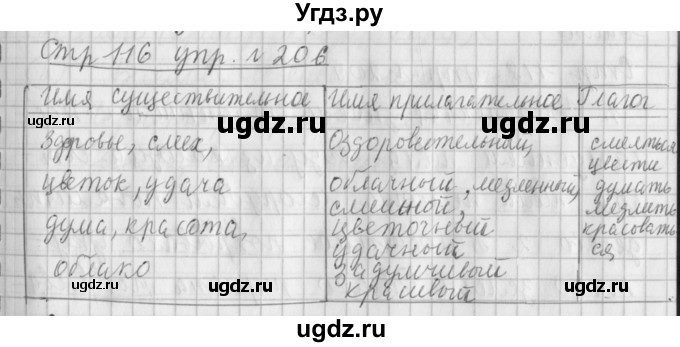 Угдз.ру
Стр 116 упр. № 206
Имя существительное Имя прилагательное Глагол
ugdz.ru ugdz.ru ugdz.ru
Здоровье, смех, Оздоровительный, смеяться
цвести
цветок, удача облачный, медленный, думать
смешной, медлить
дума, красота, цветочный красовать
удачный ся
облако задумчивый
красивый
ugdz.ru ugdz.ru ugdz.ru
ugdz.ru